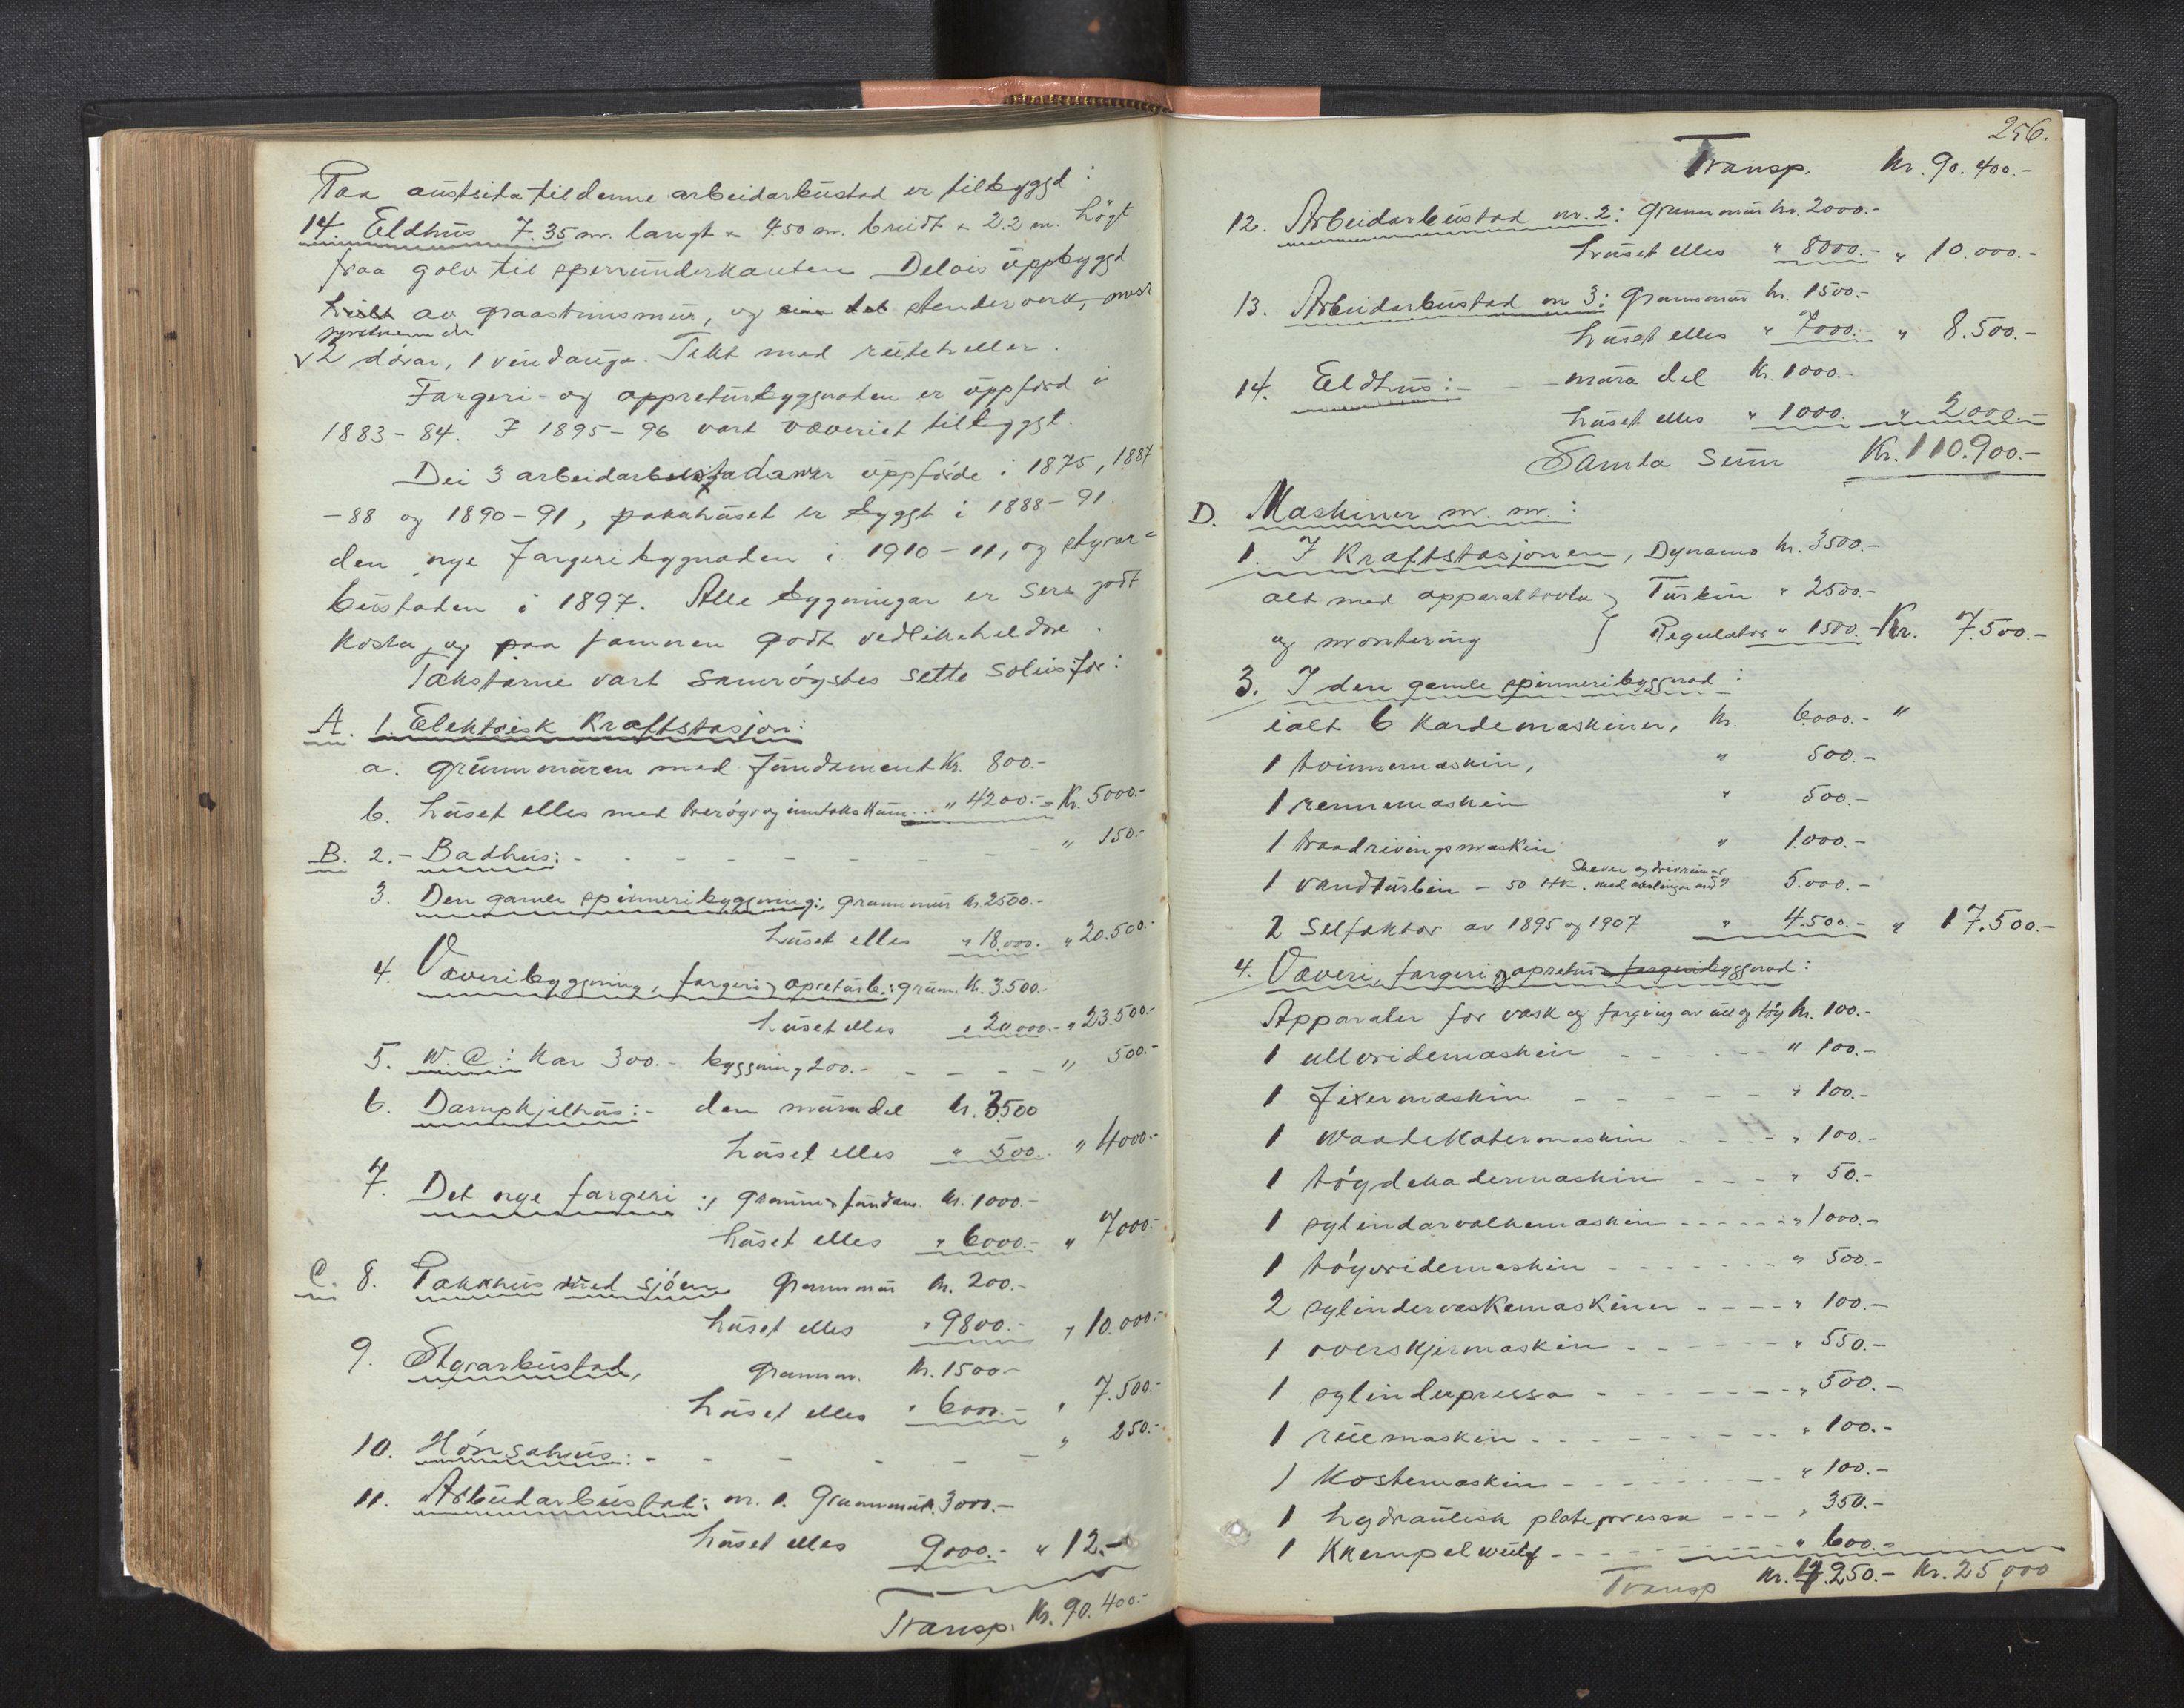 Paa austsida til denne arbeidarbustad er tilbyggd:
14. Eldhus 7.35 m. langt × 4.50 m. breidt × 2.2 m. högt
fraa golv til sperrunderkanten Delvis uppbyggd
av graasteinsmur, og stenderverk, med
√2 dörar, 1 vindauga. Tekt med rutehellor.
Fargeri- og appreturbyggnaden er uppförd i
1883-84. I 1895-96 vart væveriet tilbyggt.
Dei 3 arbeidarbustadaner uppförde i 1875, 1887
-88 og 1890-91, pakkhuset er byggt i 1888-91.
den nye fargeribygnaden i 1910-11, og styrar-
bustaden i 1897. Alle bygningar er sers godt
kosta, og paa jamnen godt vedlikeheldne.
Takstarne vart samröystes sette soleis for:
A. 1. Elektrisk Kraftstasjon:
a. grunnmuren med fundament Kr. 800.-
b. huset elles med trerör og inntakskum... " 4200.- = Kr. 5000.-
B. 2.- Badhus: - - - - - - - - " 150.-
3. Den gamle spinneribyggning:, grunnmur kr. 2500.-
huset elles " 18.000.- " 20.500.-
4. Væveribyggning, fargeri og apreturb.: grunm. Kr. 3.500.-
huset elles " 20.000.- " 23.500.-
5. W.C.: Kar 300.- byggning 200.- - - - - " 500.-
6. Dampkjelhus:- den mura del kr. 3500
huset elles " 500.- " 4000.-
7. Det nye fargeri :, grunm. × fundam. kr. 1000.-
huset elles " 6000.- " 7000.-
C. 8. Pakkhus med sjöen grunnmur kr. 200.-
huset elles " 9800.- " 10.000.-
9. Styrarbustad, grunnm. kr. 1500.-
huset elles " 6000.- " 7.500.-
10. Hönsahus: - - - - - - " 250.-
11. Arbeidarbustad: nr. 1. Grunnmur. 3000.-
huset elles 9000.- " 12.-
Transp. Kr. 90.400.-
256.
Transp. Kr. 90.400.-
12. Arbeidarbustad nr. 2: Grunnmur kr. 2000.-
huset elles " 8000.- " 10.000.-
13. Arbeidarbustad nr 3: Grunnmur kr. 1500.-
huset elles " 7000.- " 8.500.-
14. Eldhus:- - - mura del Kr. 1000.-
huset elles " 1000. " 2000.-
Samla Sum Kr. 110.900.-
D. Maskiner m. m.:
1. I Kraftstasjonen, Dynamo kr. 3500.-
alt med apparattavla } Turbin " 2500.-
og montering } Regulator " 1500.- Kr. 7.500.-
3. I den gamle spinneribyggnad:
ialt 6 Kardemaskiner, kr. 6000.- "
1 tvinnemaskin, " 500.-
1 rennemaskin " 500.-
1 traadrivingsmaskin " 1000.-
1 vandturbin - 50 HK. med akslingar med " 5.000.-
2 Selfaktor av 1895 og 1907 " 4.500.- " 17.500.-
4. Væveri, fargeri og apretur fargeribyggnad:
Apparater for vask og farging av ull og töy kr. 100.-
1 ullvridemaskin - - - - " 100.-
1 fixermaskin - - - - - " 100.-
1 vaatdekatermaskin - - - - " 100.-
1 töydekadermaskin - - - " 50.-
1 sylindarvalkemaskin - - - - - - " 1000.-
1 töyvridemaskin - - - - - - - " 500.-
2 sylindervaskemaskiner - - - - " 100.-
1 overskjermaskin - - - - - - " 550.-
1 sylinderpressa - - - - - - - - " 500.-
1 ruemaskin - - - - - - - - - " 100.-
1 Kostemaskin - - - - - - - - " 100.-
1 hydraulisk platepressa - - - " 350.-
1 Krempelwulf - - - - - - - - " 600.-
Transp Kr. 4.250.- Kr. 25,000